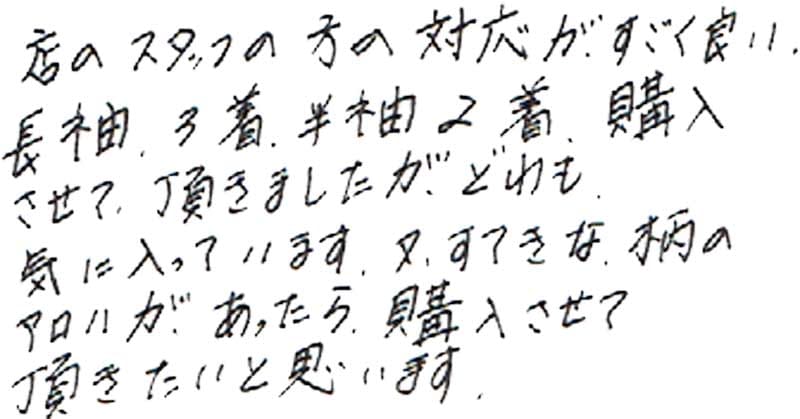 店のスタッフの方の対応がすごく良い.
長袖.3着.半袖2着.購入
させて.頂きましたが.どれも.
気に入っています.又.すてきな.柄の
アロハが.あったら.購入させて
頂きたいと思います.